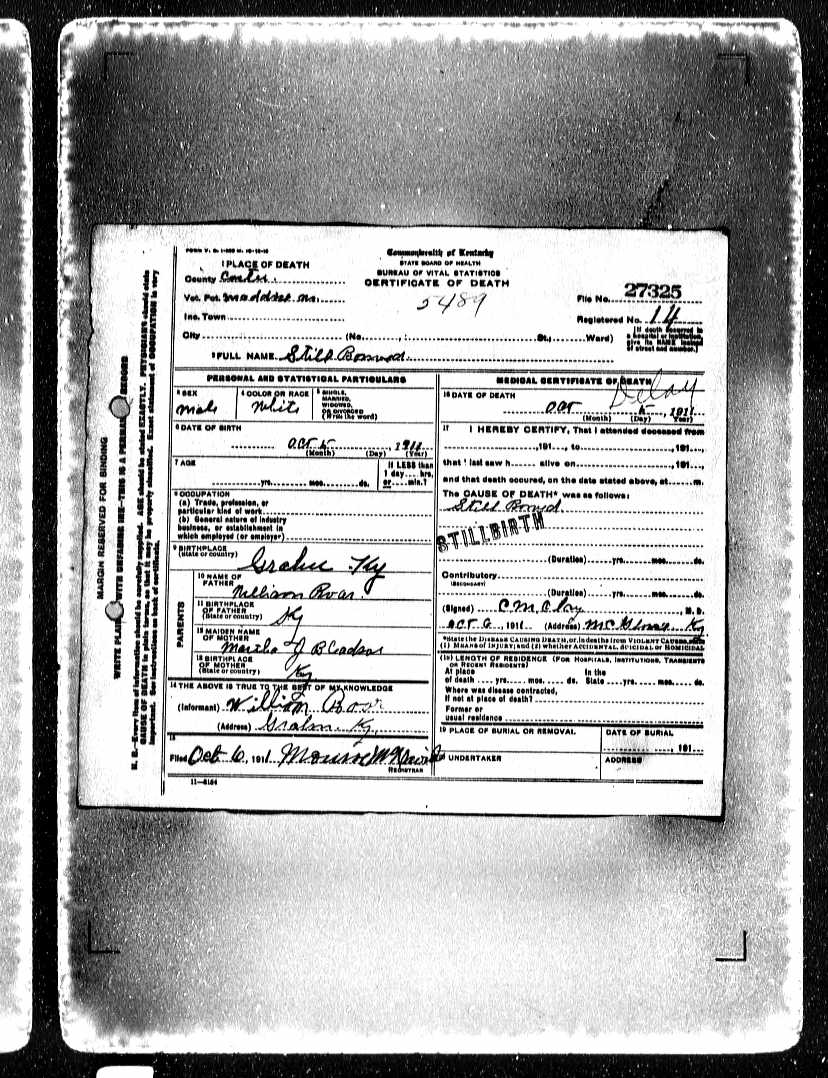 FORM V. S. 1
Commonwealth of Kentucky
STATE BOARD OF HEALTH
BUREAU OF VITAL STATISTICS
CERTIFICATE OF DEATH
5489
1 PLACE OF DEATH
County
Vot. Pct.
Inc. Town
City (No. St.; Ward)
File No. 27325
Registered No. 14
[If death occurred in a hospital or institution, give its NAME instead of street and number.]
2 FULL NAME Still Bornd
PERSONAL AND STATISTICAL PARTICULARS
3 SEX
Male
4 COLOR OR RACE
White
5 SINGLE, MARRIED, WIDOWED, OR DIVORCED (Write the word)
6 DATE OF BIRTH
Oct 5, 1911
(Month) (Day) (Year)
7 AGE
yrs. mos. ds.
If LESS than 1 day hrs. or min.?
8 OCCUPATION
(a) Trade, profession, or particular kind of work
(b) General nature of industry business, or establishment in which employed (or employer)
9 BIRTHPLACE
(State or country) Grahn Ky
PARENTS
10 NAME OF FATHER
11 BIRTHPLACE OF FATHER
(State or country) Ky
12 MAIDEN NAME OF MOTHER
Martha J
13 BIRTHPLACE OF MOTHER
(State or country) Ky
14 THE ABOVE IS TRUE TO THE BEST OF MY KNOWLEDGE
(Informant) William
(Address) Grahn Ky.
15
Filed Oct 6, 1911
REGISTRAR
11—5184
MEDICAL CERTIFICATE OF DEATH
Delay
16 DATE OF DEATH
Oct 5, 1911
(Month) (Day) Year)
17 I HEREBY CERTIFY, That I attended deceased from
191 , to 191 ,
that I last saw h alive on 191 ,
and that death occured, on the date stated above, at m.
The CAUSE OF DEATH* was as follows:
Still Bornd
STILLBIRTH
(Duration) yrs. mos. ds.
Contributory
(SECONDARY)
(Duration) yrs. mos. ds.
(Signed) C M , M. D.
Oct 6, 1911 (Address) Ky
*State the DISEASE CAUSING DEATH, or, in deaths from VIOLENT CAUSES, state (1) MEANS of INJURY; and (2) whether ACCIDENTAL, SUICIDAL or HOMICIDAL
(18) LENGTH OF RESIDENCE (FOR HOSPITALS, INSTITUTIONS, TRANSIENTS OR RECENT RESIDENTS)
At place of death yrs. mos. ds. In the State yrs. mos. ds.
Where was disease contracted, if not at place of death?
Former or usual residence
19 PLACE OF BURIAL OR REMOVAL
DATE OF BURIAL
191
20 UNDERTAKER
ADDRESS
MARGIN RESERVED FOR BINDING
WRITE PLAINLY WITH UNFADING INK—THIS IS A PERMANENT RECORD
N. B.—Every item of information should be carefully supplied. AGE should be stated EXACTLY. PHYSICIANS should state CAUSE OF DEATH in plain terms, so that it may be properly classified. Exact statement of OCCUPATION is very important. See instructions on back of certificate.